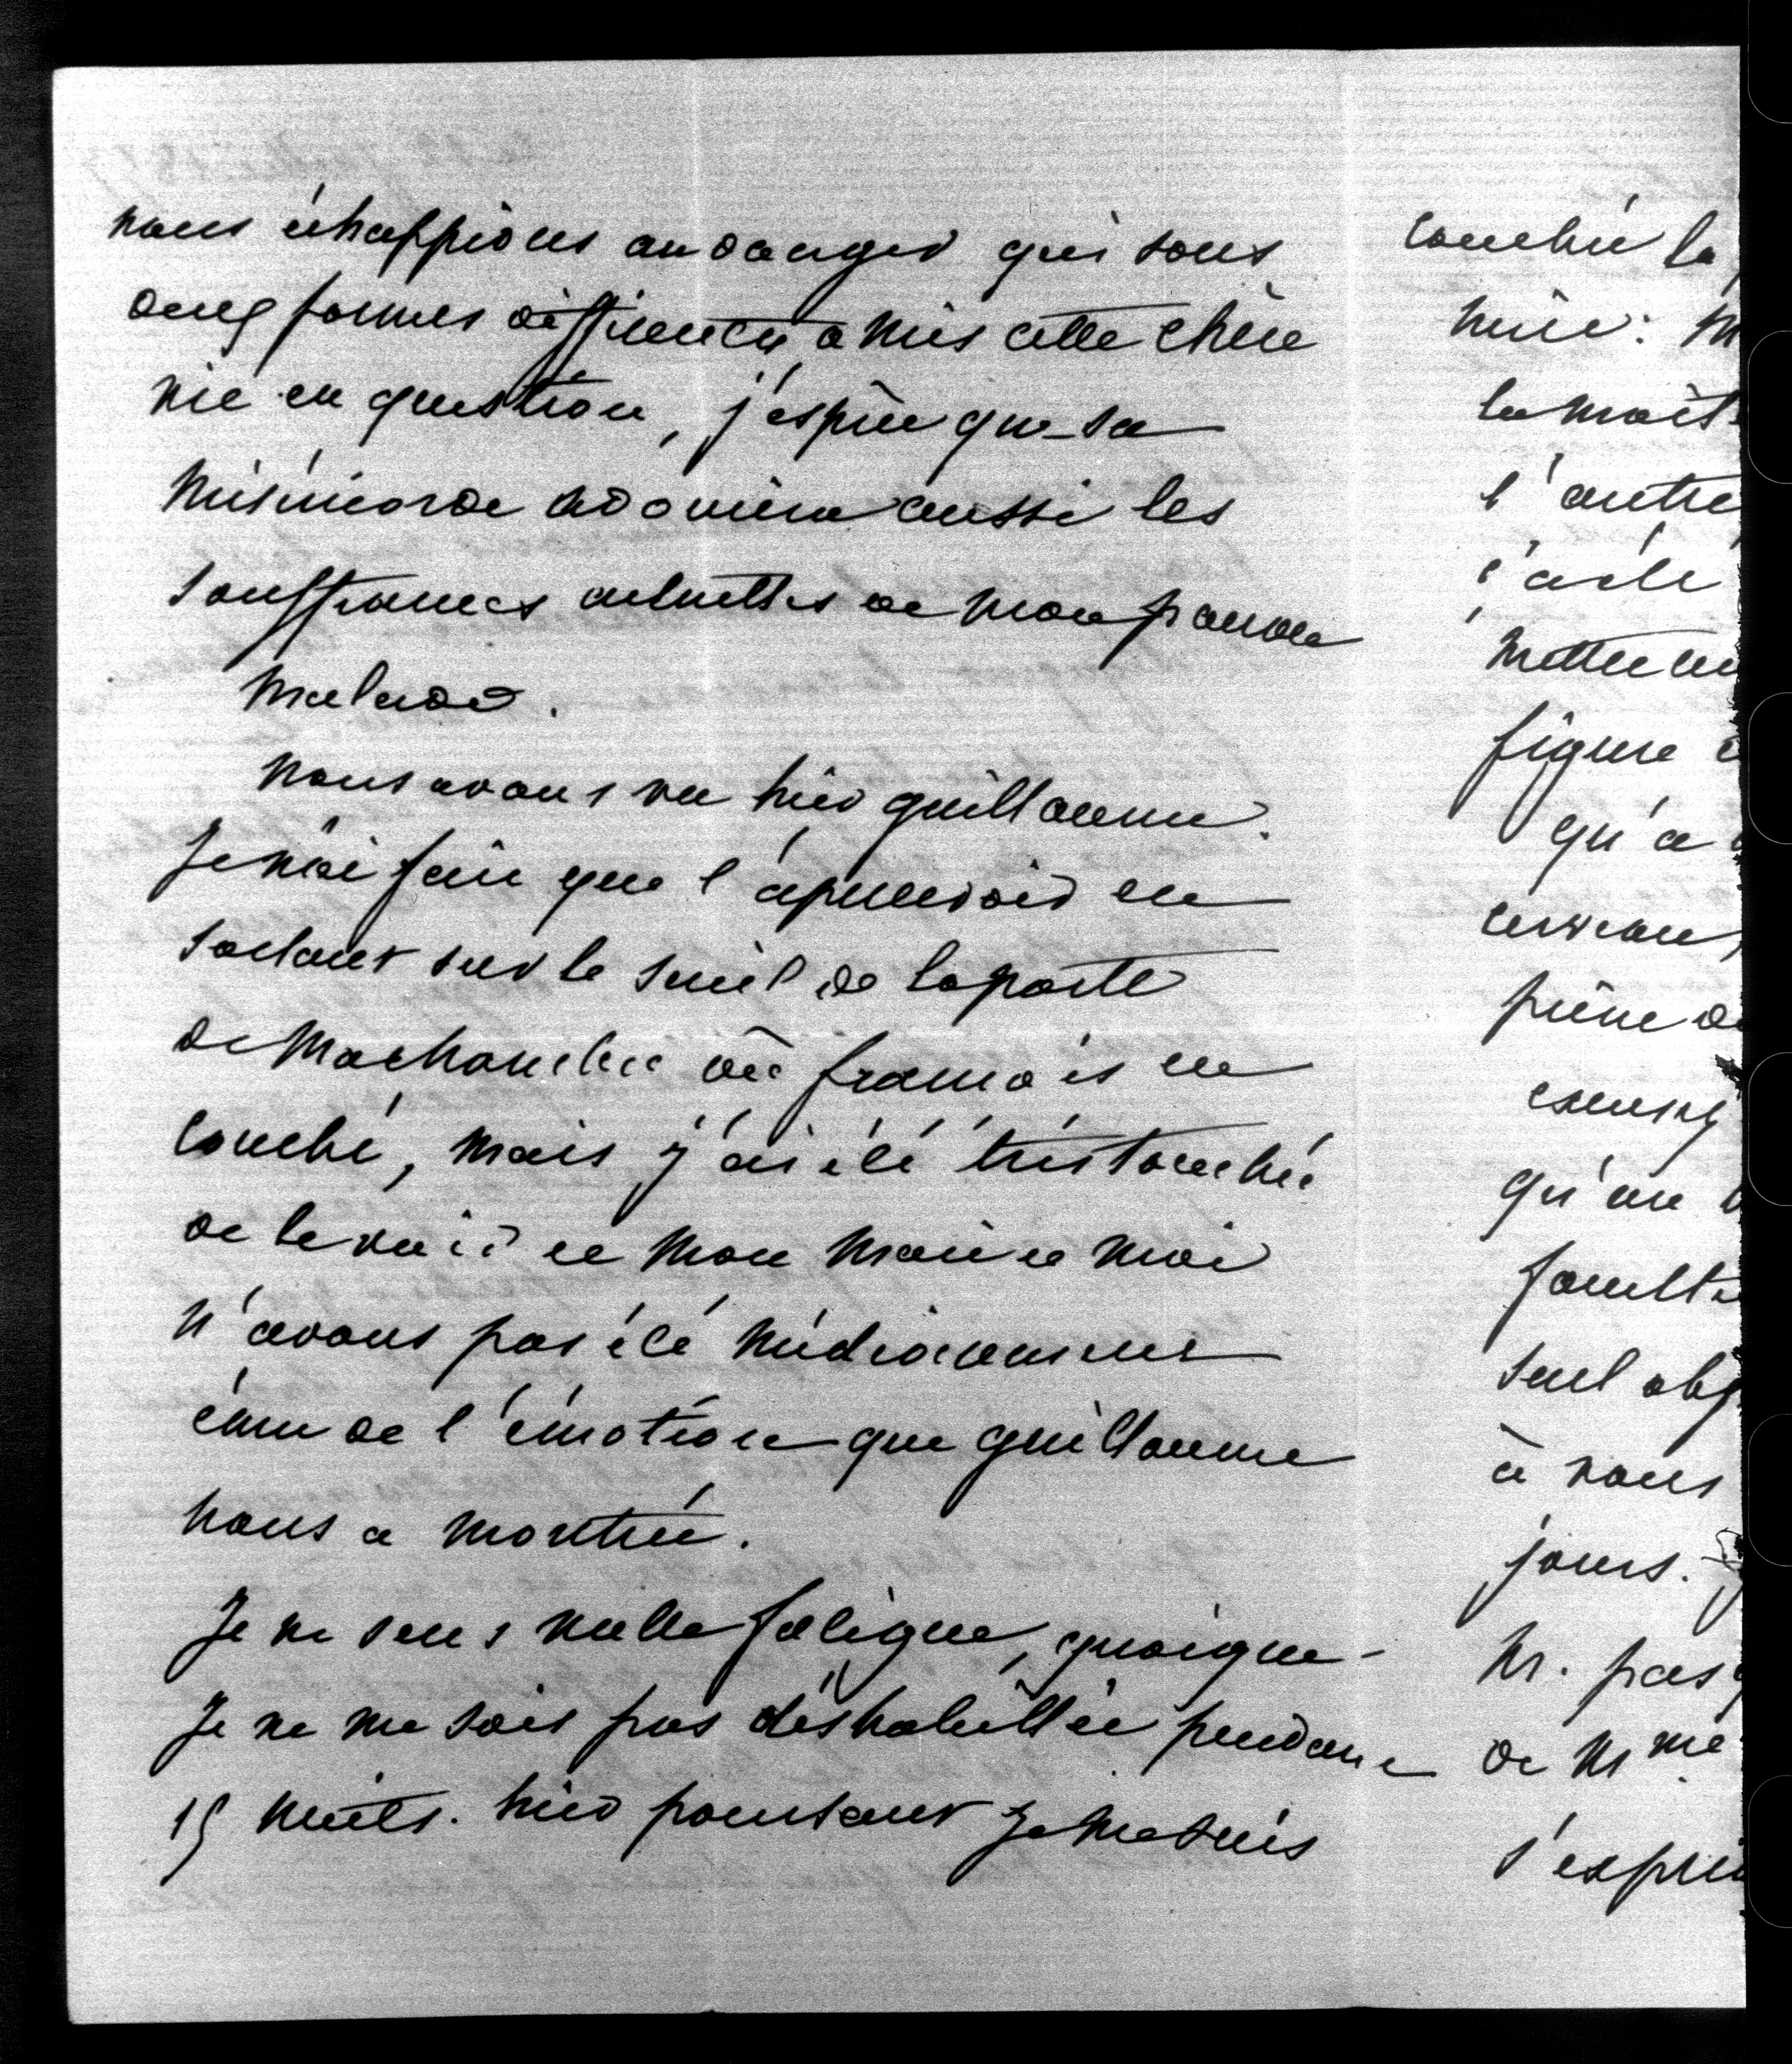 nous échappions au danger qui sous
deux formes différentes a mis cette chère
vie en question, j'espère que sa
miséricorde adoucira aussi les
souffrances actuelles de mon pauvre
malade.
nous avons vu hier guillaume.
Je n'ai fait que l'apercevoir en
sortant sur le seuil de la porte
de ma chambre où françois est
couché, mais j'ai été très touchée
de le voir et mon mari et moi
n'avons pas été médiocrement
émus de l'émotion que guillaume
nous a montrée.
Je ne sens nulle fatigue, quoique
Je ne me sois pas déshabillée pendant
15 nuits. hier pourtant Je me suis
couchée la
l'autre
j'ai été
figure
qu'a
cerveau,
qu'au
seul obj
à nous
jours.
de Mme
s'exprim